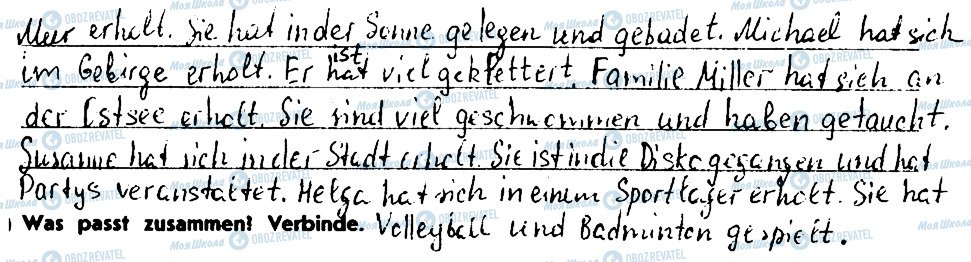 Meer erholt. Sie hat in der Sonne gelegen und gebadet. Michael hat sich
im Gebirge erholt. Er hat ist viel geklettert. Familie Miller hat sich an
der Ostsee erholt. Sie sind viel geschwommen und haben getaucht.
Susanne hat sich in der Stadt erholt. Sie ist in die Disko gegangen und hat
Partys veranstaltet. Helga hat sich in einem Sportlager erholt. Sie hat
Was passt zusammen? Verbinde. Volleyball und Badminton gespielt.